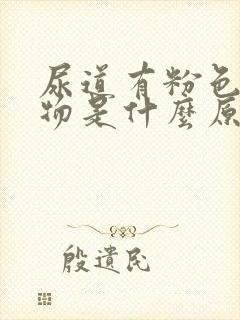 尿道有粉色
物是什麼原
殷遺民